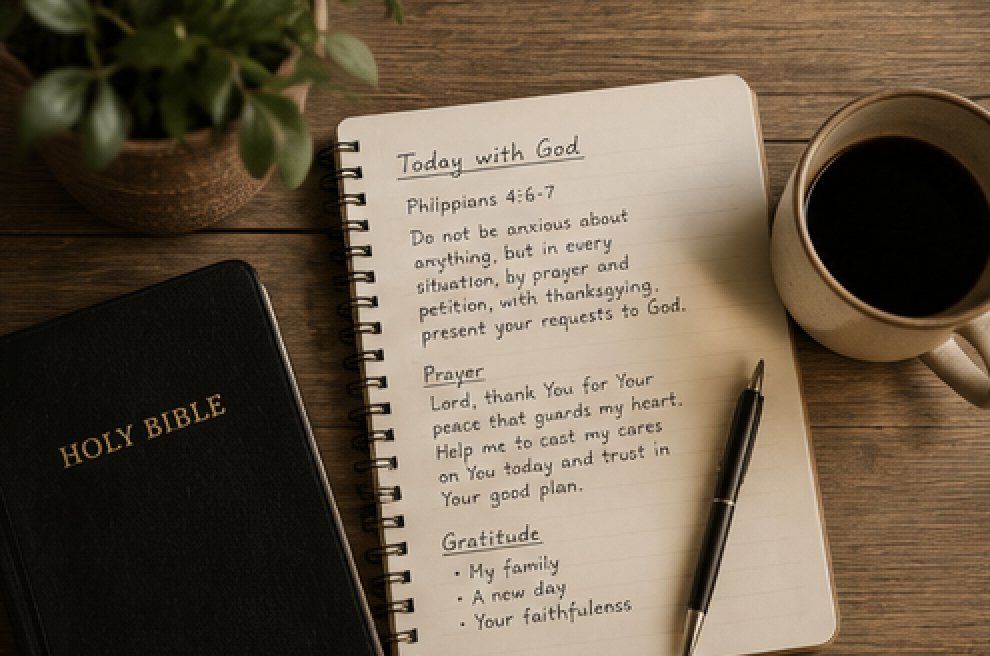 Today with God
Phiippians 4:6-7
Do not be anxious about
anything, but in every
situation, by prayer and
petition, with thanksgying,
present your requests to God.
Prayer
Lord, thank You for Your
peace that guards my heart.
Help me to cast my cares
on You today and trust in
Your good plan.
Gratitude
• My family
• A new day
• Your faithfulenss
HOLY BIBLE